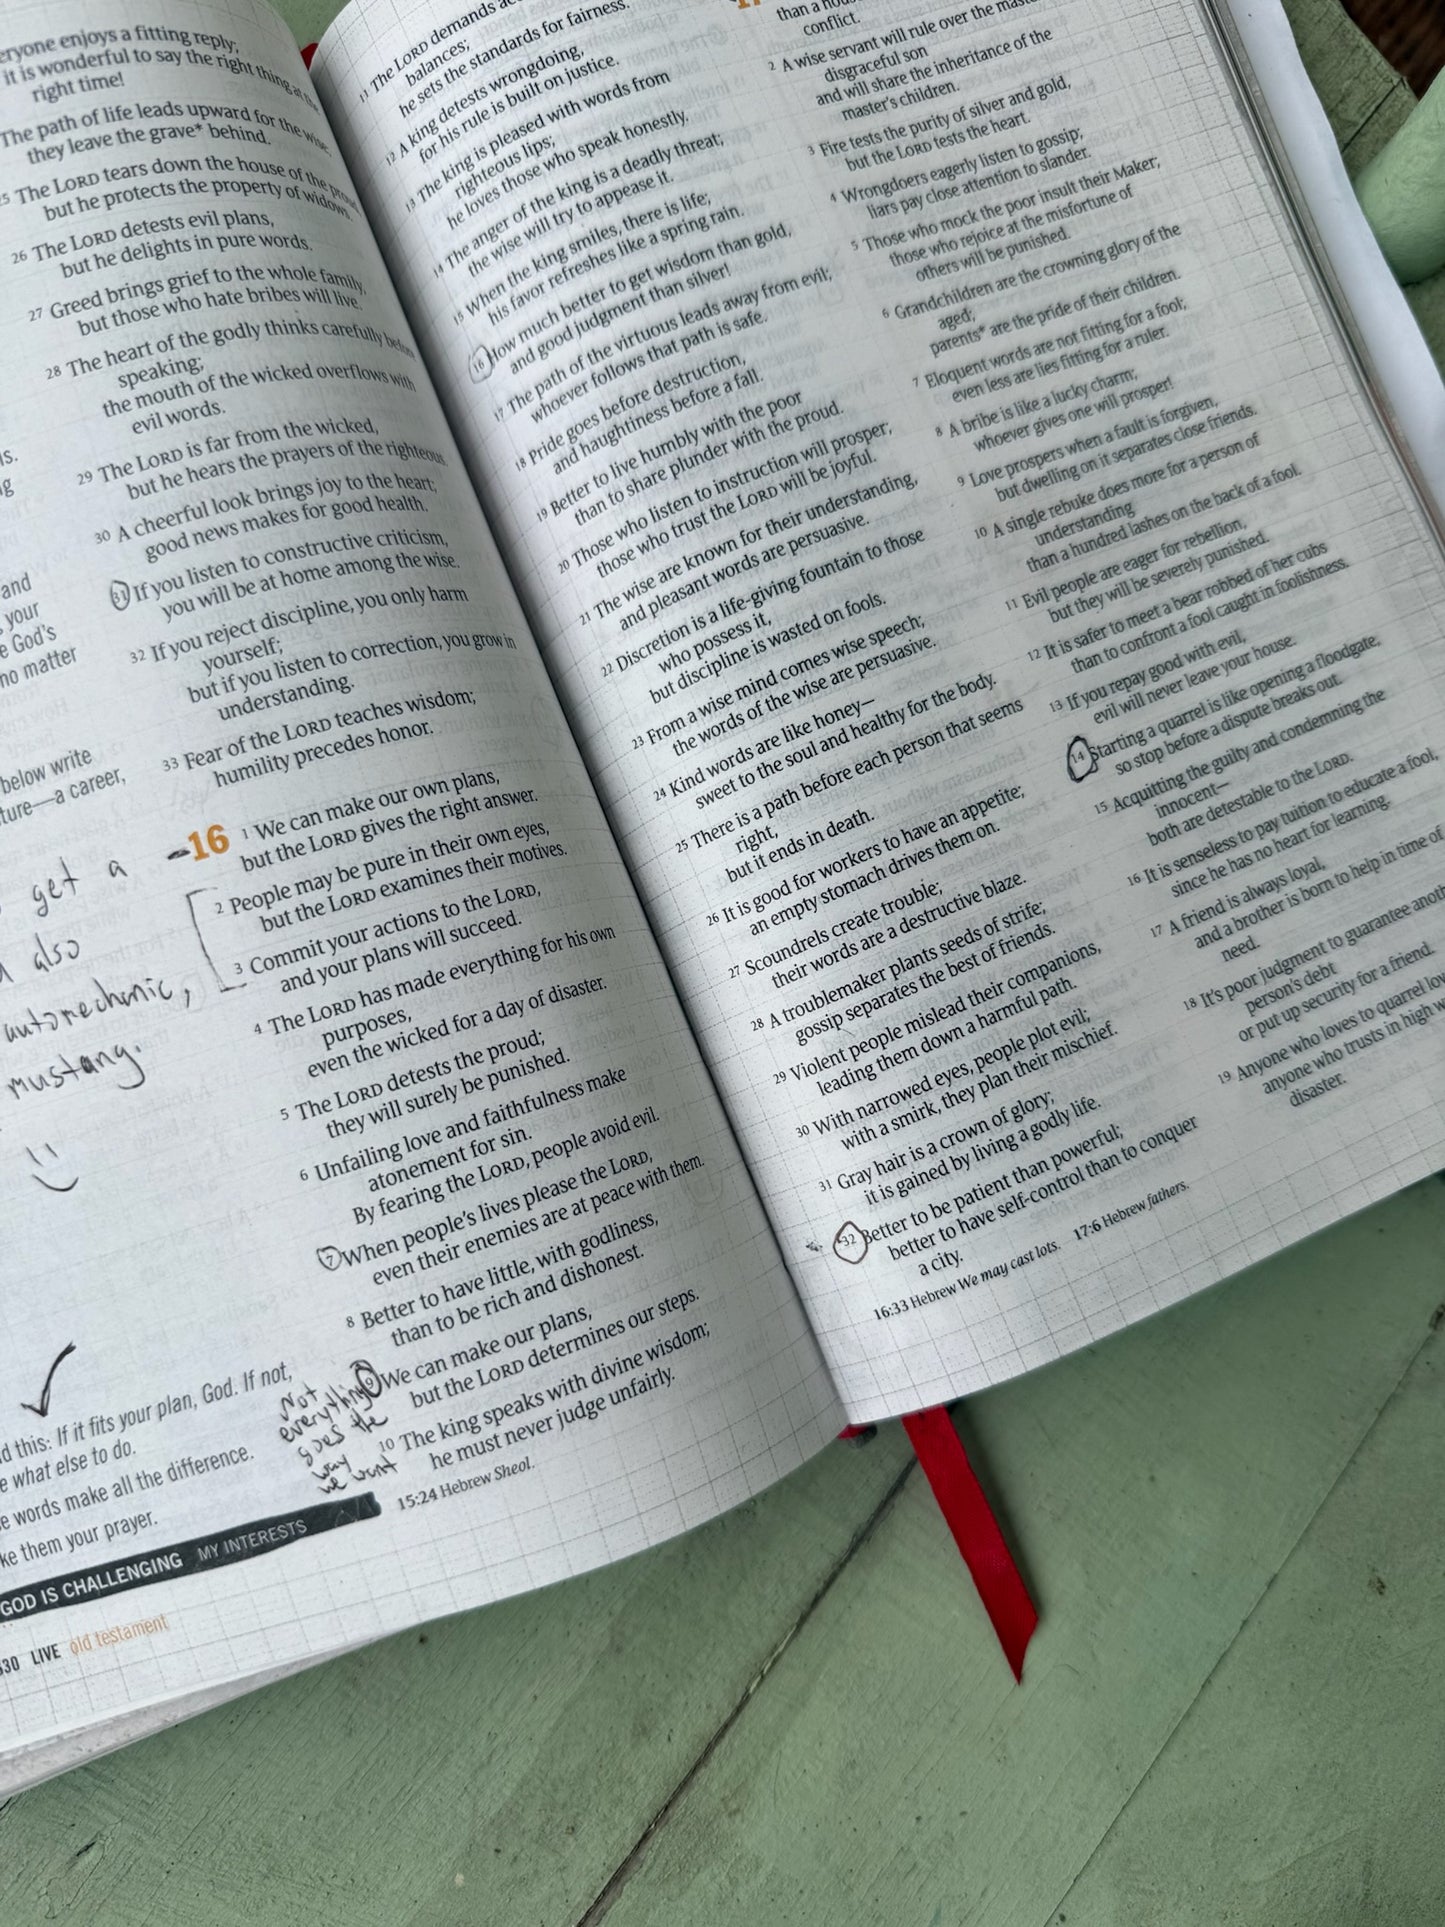 eryone enjoys a fitting reply;
it is wonderful to say the right thing at the
right time!
The path of life leads upward for the wise;
they leave the grave* behind.
25 The LORD tears down the house of the proud
but he protects the property of widows.
26 The LORD detests evil plans,
but he delights in pure words.
27 Greed brings grief to the whole family,
but those who hate bribes will live.
28 The heart of the godly thinks carefully before
speaking;
the mouth of the wicked overflows with
evil words.
29 The LORD is far from the wicked,
but he hears the prayers of the righteous.
30 A cheerful look brings joy to the heart;
good news makes for good health.
31 If you listen to constructive criticism,
you will be at home among the wise.
32 If you reject discipline, you only harm
yourself;
but if you listen to correction, you grow in
understanding.
33 Fear of the LORD teaches wisdom;
humility precedes honor.
and
your
e God's
no matter
below write
ture—a career,
get a
also
automechanic,
mustang.
d this: If it fits your plan, God. If not,
e what else to do.
e words make all the difference.
ke them your prayer.
16
1 We can make our own plans,
but the LORD gives the right answer.
2 People may be pure in their own eyes,
but the LORD examines their motives.
3 Commit your actions to the LORD,
and your plans will succeed.
4 The LORD has made everything for his own
purposes,
even the wicked for a day of disaster.
5 The LORD detests the proud;
they will surely be punished.
6 Unfailing love and faithfulness make
atonement for sin.
By fearing the LORD, people avoid evil.
7 When people's lives please the LORD,
even their enemies are at peace with them.
8 Better to have little, with godliness,
than to be rich and dishonest.
9 We can make our plans,
but the LORD determines our steps.
Not
everything
goes the
way
we want
10 The king speaks with divine wisdom;
he must never judge unfairly.
15:24 Hebrew Sheol.
GOD IS CHALLENGING MY INTERESTS
30 LIVE old testament
11 The LORD demands
balances;
he sets the standards for fairness.
12 A king detests wrongdoing,
for his rule is built on justice.
13 The king is pleased with words from
righteous lips;
he loves those who speak honestly.
14 The anger of the king is a deadly threat;
the wise will try to appease it.
15 When the king smiles, there is life;
his favor refreshes like a spring rain.
16 How much better to get wisdom than gold,
and good judgment than silver!
17 The path of the virtuous leads away from evil;
whoever follows that path is safe.
18 Pride goes before destruction,
and haughtiness before a fall.
19 Better to live humbly with the poor
than to share plunder with the proud.
20 Those who listen to instruction will prosper;
those who trust the LORD will be joyful.
21 The wise are known for their understanding,
and pleasant words are persuasive.
22 Discretion is a life-giving fountain to those
who possess it,
but discipline is wasted on fools.
23 From a wise mind comes wise speech;
the words of the wise are persuasive.
24 Kind words are like honey—
sweet to the soul and healthy for the body.
25 There is a path before each person that seems
right,
but it ends in death.
26 It is good for workers to have an appetite;
an empty stomach drives them on.
27 Scoundrels create trouble;
their words are a destructive blaze.
28 A troublemaker plants seeds of strife;
gossip separates the best of friends.
29 Violent people mislead their companions,
leading them down a harmful path.
30 With narrowed eyes, people plot evil;
with a smirk, they plan their mischief.
31 Gray hair is a crown of glory;
it is gained by living a godly life.
32 Better to be patient than powerful;
better to have self-control than to conquer
a city.
16:33 Hebrew We may cast lots. 17:6 Hebrew fathers.
than a house
conflict.
2 A wise servant will rule over the master's
disgraceful son
and will share the inheritance of the
master's children.
3 Fire tests the purity of silver and gold,
but the LORD tests the heart.
4 Wrongdoers eagerly listen to gossip;
liars pay close attention to slander.
5 Those who mock the poor insult their Maker;
those who rejoice at the misfortune of
others will be punished.
6 Grandchildren are the crowning glory of the
aged;
parents* are the pride of their children.
7 Eloquent words are not fitting for a fool;
even less are lies fitting for a ruler.
8 A bribe is like a lucky charm;
whoever gives one will prosper!
9 Love prospers when a fault is forgiven,
but dwelling on it separates close friends.
10 A single rebuke does more for a person of
understanding
than a hundred lashes on the back of a fool.
11 Evil people are eager for rebellion,
but they will be severely punished.
12 It is safer to meet a bear robbed of her cubs
than to confront a fool caught in foolishness.
13 If you repay good with evil,
evil will never leave your house.
14 Starting a quarrel is like opening a floodgate,
so stop before a dispute breaks out.
15 Acquitting the guilty and condemning the
innocent—
both are detestable to the LORD.
16 It is senseless to pay tuition to educate a fool,
since he has no heart for learning.
17 A friend is always loyal,
and a brother is born to help in time of
need.
18 It's poor judgment to guarantee anoth
person's debt
or put up security for a friend.
19 Anyone who loves to quarrel lov
anyone who trusts in high w
disaster.